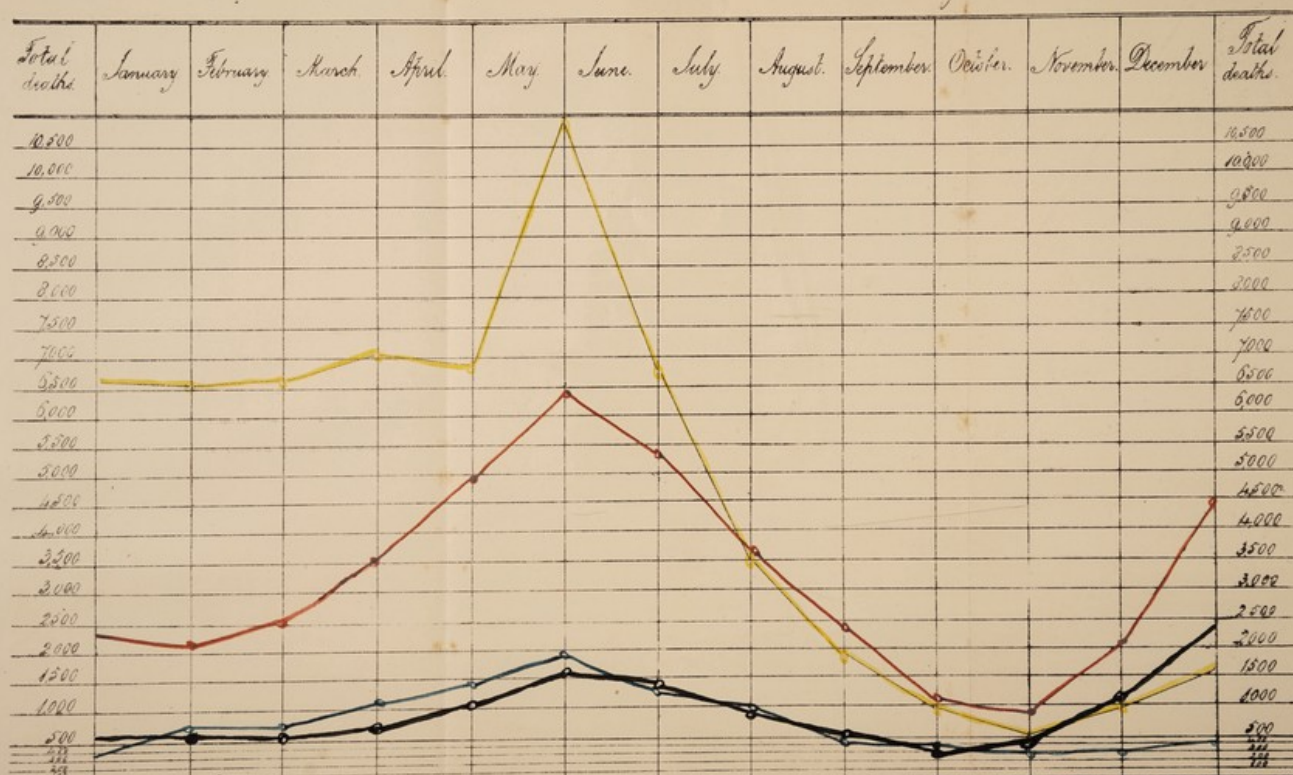 Total deaths. January February. March. April. May. June. July. August. September. October. November. December Total deaths.
10,500 10,500
10,000 10,000
9,500 9,500
9,000 9,000
8,500 8,500
8,000 8,000
7,500 7,500
7,000 7,000
6,500 6,500
6,000 6,000
5,500 5,500
5,000 5,000
4,500 4,500
4,000 4,000
3,500 3,500
3,000 3,000
2,500 2,500
2,000 2,000
1,500 1,500
1,000 1,000
500 500